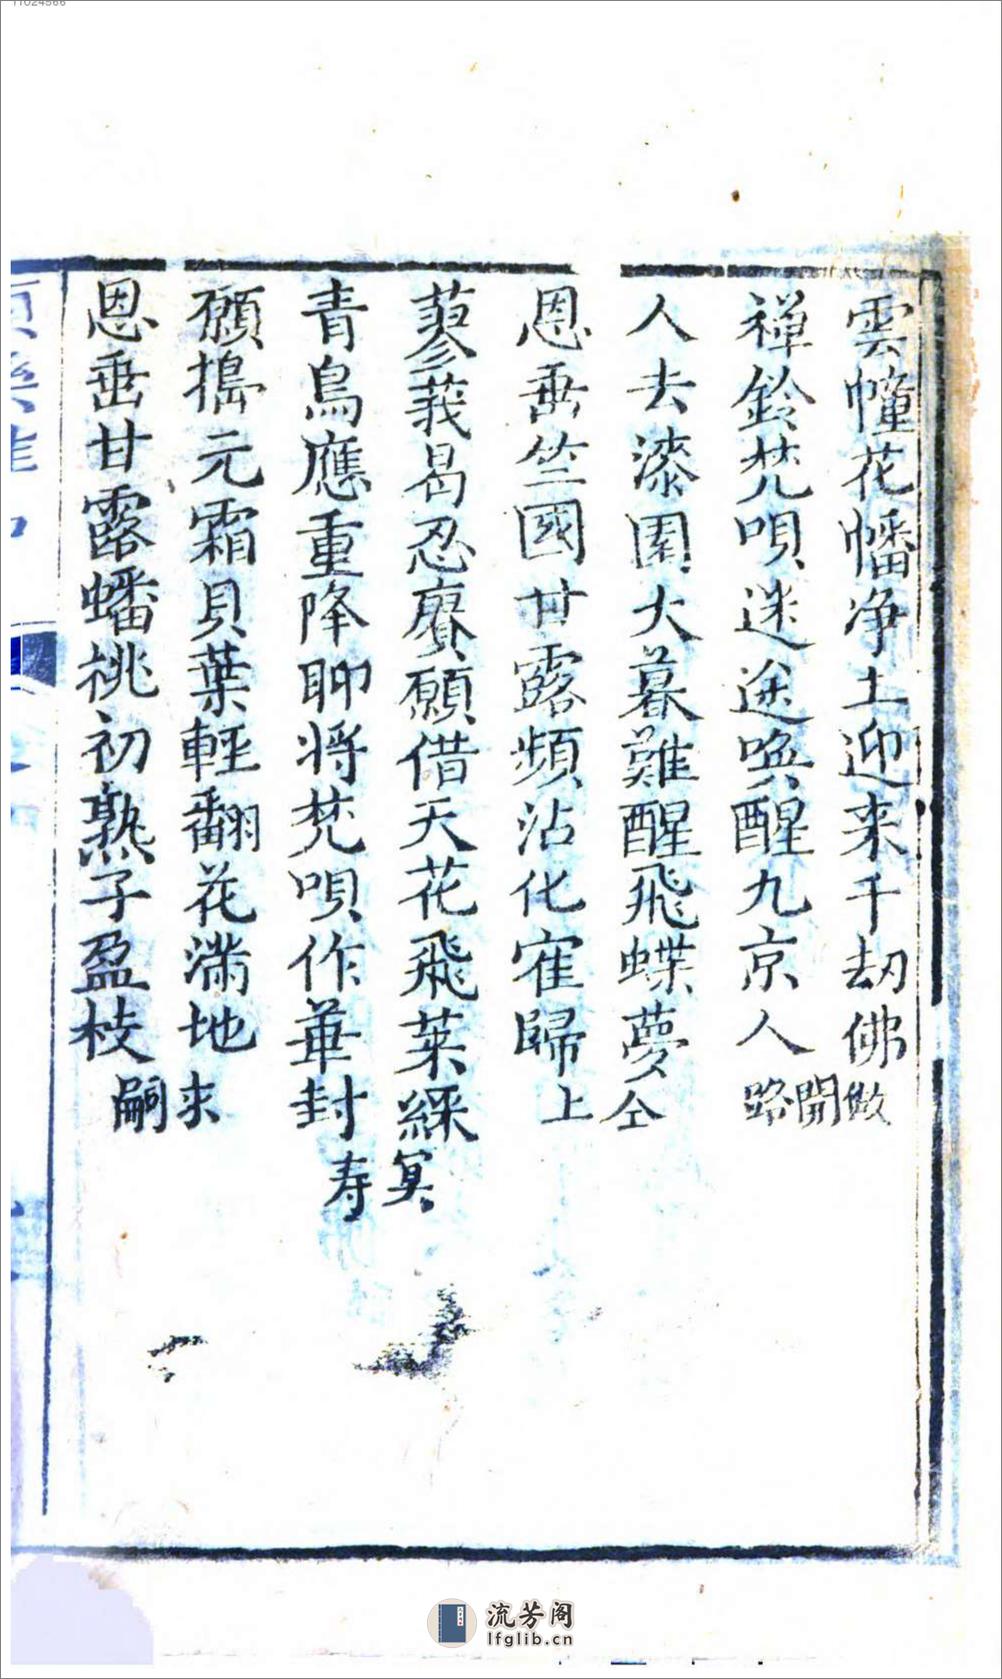 雲幢花幡净土迎来千劫佛做
禅鈴梵唄迷途唤醒九京人開路
人去漆園大暮難醒飛蝶夢仝
恩垂竺國甘露頻沾化寉歸上
蓼莪曷忍賡願借天花飛莱綵冥
青鳥應重降聊将梵唄作華封寿
願搗元霜貝葉輕翻花滿地求
恩垂甘露蟠桃初熟子盈枝嗣
流芳阁
lfglib.cn